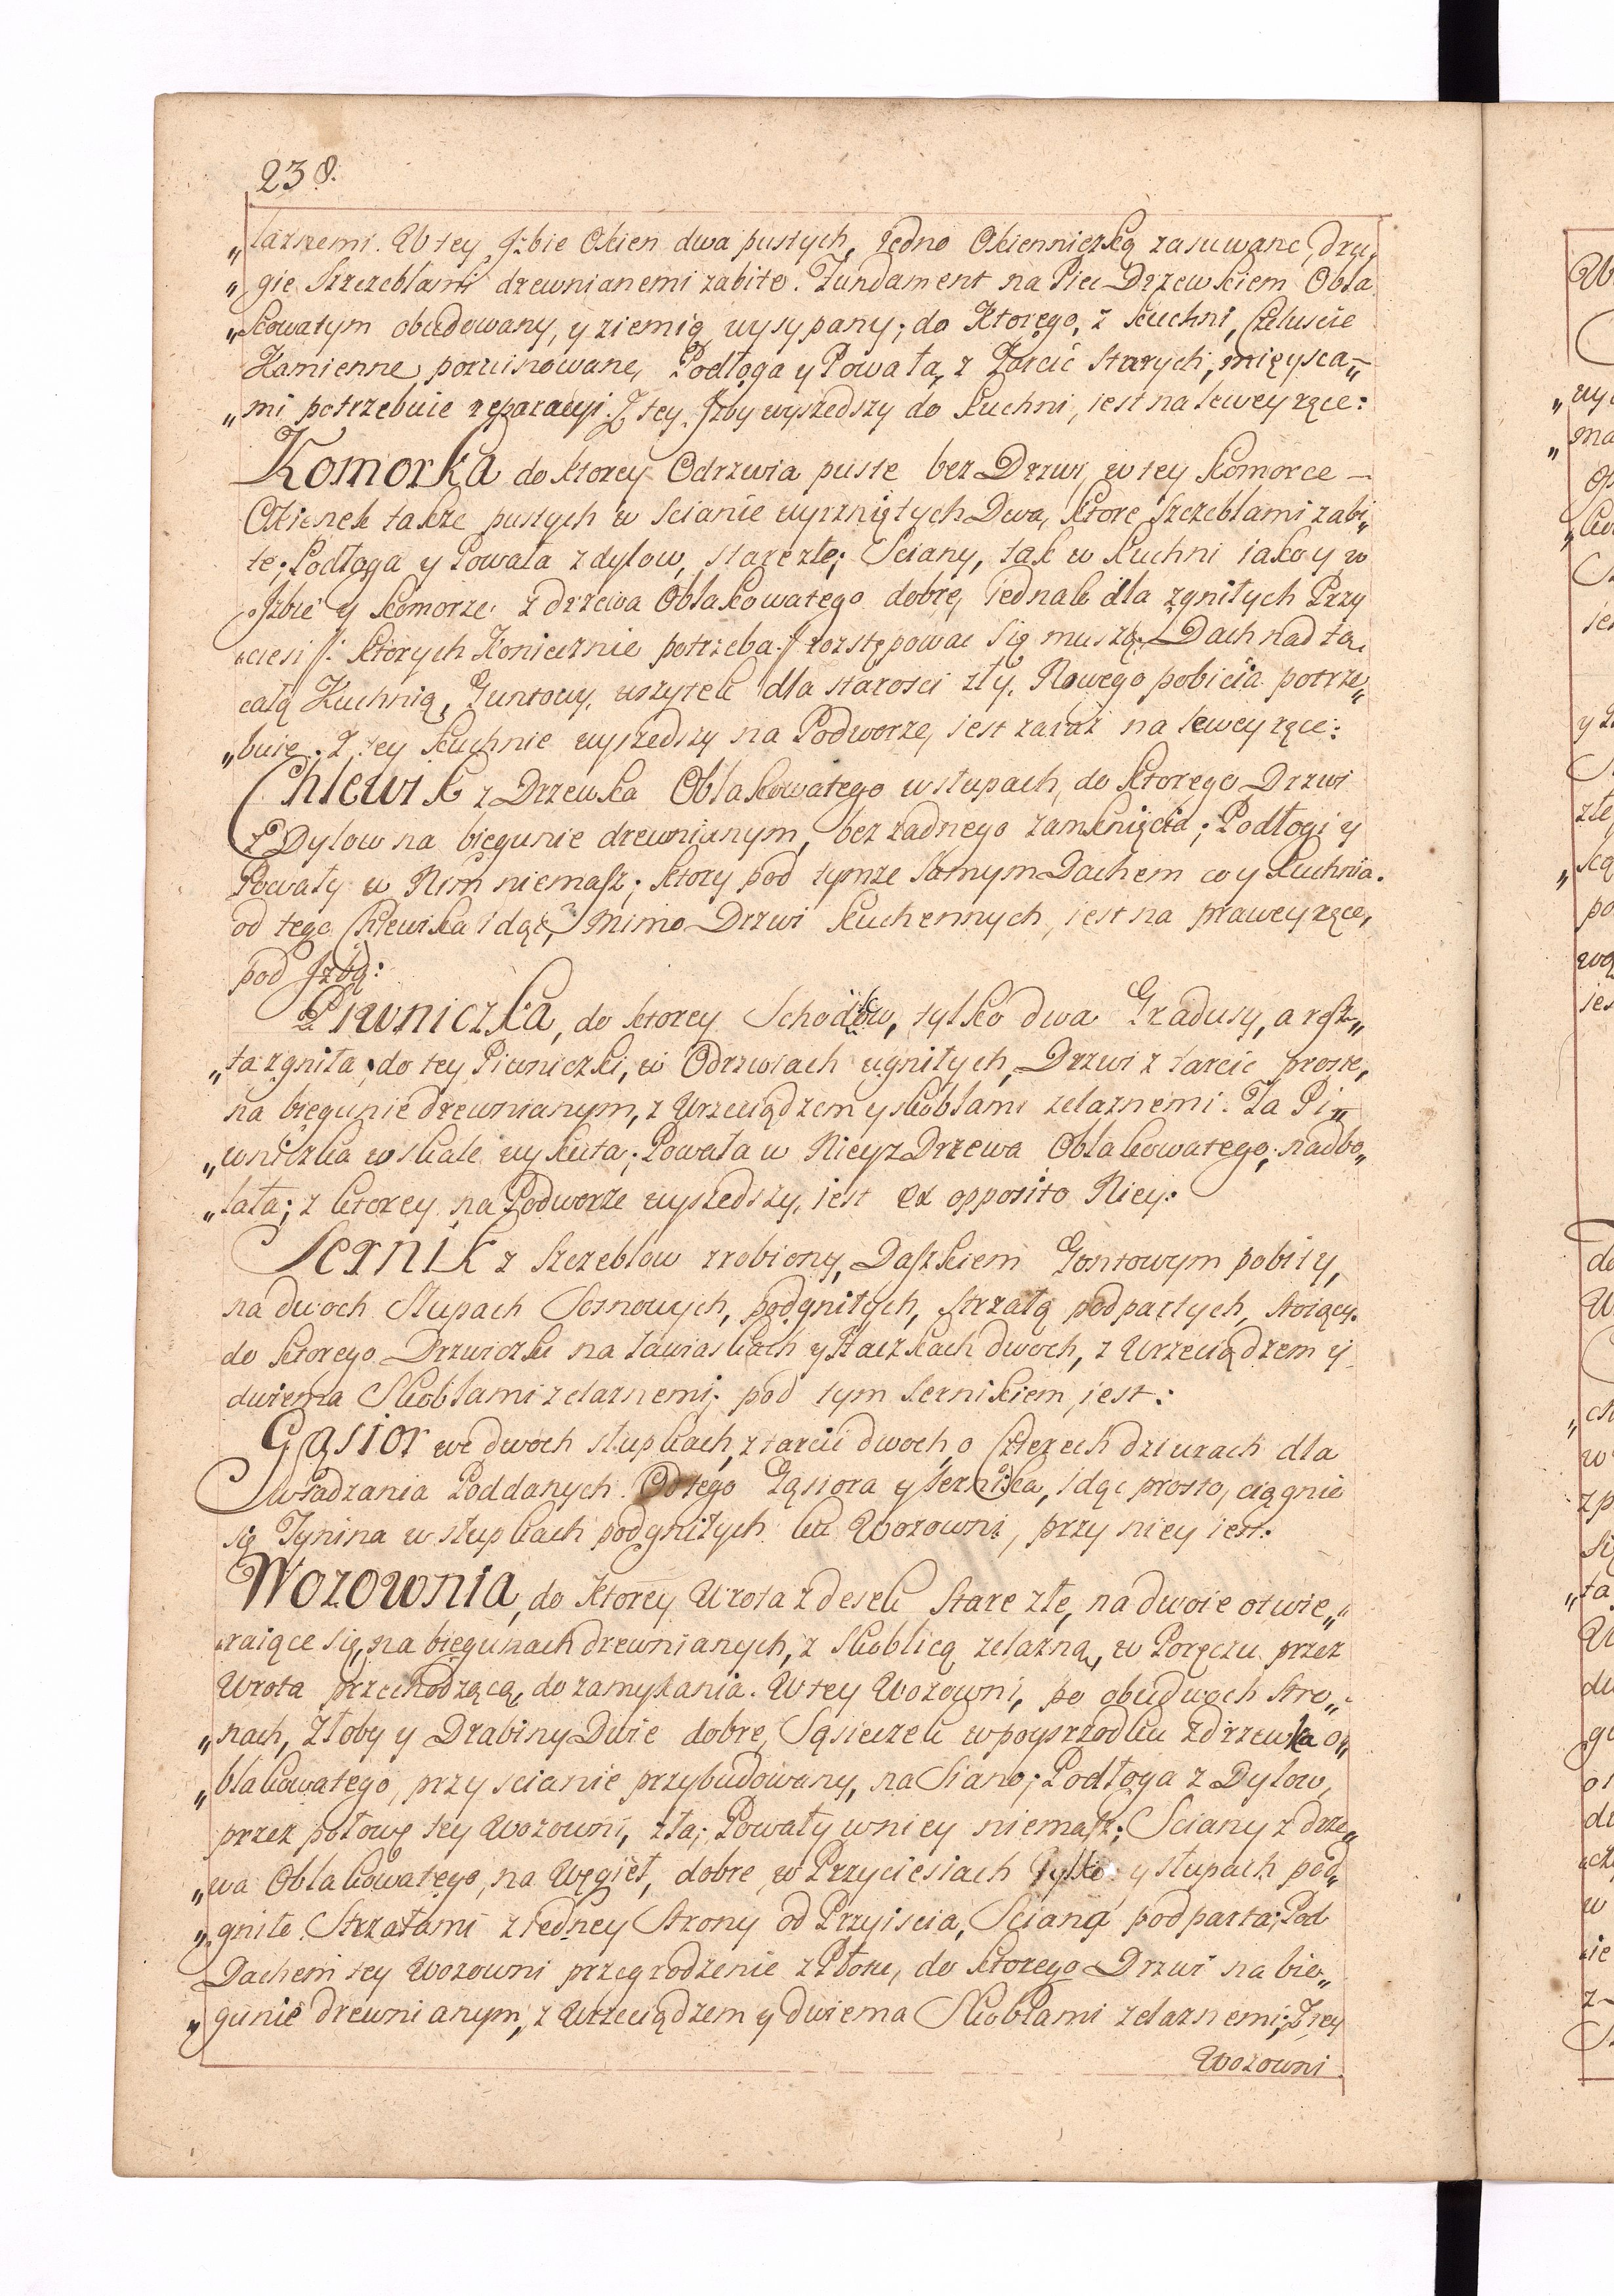 238.
„laznemi. W tey Jzbie Okien dwa pustych, jedno Okienniczką zasuwane, dru„
„gie Szczeblami drewnianemi zabite. Fundament na Piec Drzewkiem Obla
„kowatym obudowany, y ziemią wysypany; do Ktorego, z Kuchni, Czeluscie
Kamienne porujnowane, Podłoga y Powała, z Tarcic starych, mięysca„
„mi potrzebuie reparacyi. Z tey Jzby wyszedszy do Kuchni, iest na lewey ręce:
Komorka do ktorey Odrzwia puste bez Drzwi, w tey Komorce —
Okienek także pustych w scianie wyrzniętych Dwa, Ktore Szczeblami zabi„
te; Podłoga y Powała z dylow, stare złe; Sciany, tak w Kuchni iako y w
Jzbie y Komorze z drzewa Oblakowatego dobre, iednak dla zgniłych Przy
„ciesi //: ktorych Koniecznie potrzeba :// rozstępowac się muszą. Dach nad tą
całą Kuchnią, Guntowy, wszytek dla starosci zły, Nowego pobicia potrze„
„buie. Z tey Kuchnie wyszedszy na Podworze, iest zaraz na lewey ręce:
Chlewik z Drzewka Oblakowatego w słupach, do Ktorego Drzwi
z Dylow na biegunie drewnianym, bez żadnego zamknięcia; Podłogi y
Powały w Nim niemasz; ktory pod tymze samym Dachem co y Kuchnia.
od tego Chlewika idąc, mimo Drzwi Kuchennych, iest na prawey ręce,
pod Jzbą:
Piwniczka, do ktorey Schodkow, tylko dwa Gradusy, a resz„
„ta zgniła, do tey Piwniczki, w Odrzwiach ugniłych, Drzwi z tarcic proste,
na biegunie drewnianym, z Wrzeciądzem y skoblami zelaznemi. Ta Pi„
„wniczka w skale wykuta; Powała w Niey z Drzewa Oblakowatego, nadbo„
„lała; z ktorey na Podworze wyszedszy, iest ex opposito Niey:
Sernik z Szczeblow zrobiony, Daszkiem Gontowym pobity,
na dwoch Słupach Sosnowych, podgniłych, Strzałą podpartych, stoiący.
do ktorego Drzwiczki na zawiaskach y Haczkach dwoch, z Wrzeciądzem y
dwiema Skoblami zelaznemi; pod tym Sernikiem, iest:
Gąsior we dwoch słupkach, z tarcic dwoch, o czterech dziurach dla
wsadzania Poddanych. Od tego Gąsiora y Sernika, idąc prosto, ciągnie
się Tynina w słupkach podgniłych ku Wozowni, przy niey iest:
Wozownia, do Ktorey Wrota z desek Stare złe, na dwoie otwie„
„raiące się, na biegunach drewnianych, z Skoblicą zelazną, w Poręczu przez
Wrota przechodzącą, do zamykania. W tey Wozowni, po obudwoch Stro„
„nach, Złoby y Drabiny Dwie dobre, Sąsieczek w poyrzodku z drzewka o„
„blakowatego, przy scianie przybudowany, na Siano; Podłoga z Dylow,
przez połowę tey Wozowni, zła; Powały w niey niemasz; Sciany z drze„
„wa Oblakowatego, na Węgieł, dobre, w Przyciesiach tylko y słupach pod„
„gniłe. Strzałami z iedney Strony od Przyiscia, Sciana podparta; Pod
Dachem tey Wozowni przegrodzenie z Płoz, do ktorego Drzwi na bie„
„gunie drewnianym, z Wrzeciądzem y dwiema Skoblami zelaznemi; Z tey
Wozowni